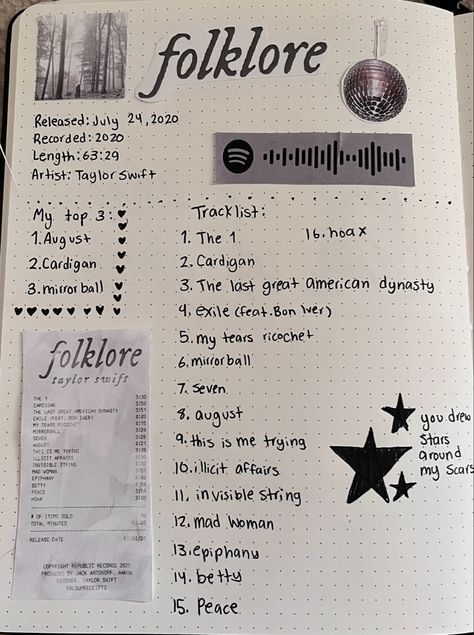 folklore
Released: July 24, 2020
Recorded: 2020
Length: 63:29
Artist: Taylor Swift
Spotify
My top 3:
1. August
2. Cardigan
3. mirrorball
Tracklist:
1. The 1
2. Cardigan
3. The last great american dynasty
4. exile (feat. Bon iver)
5. my tears ricochet
6. mirrorball
7. seven
8. august
9. this is me trying
10. illicit affairs
11. invisible string
12. mad woman
13. epiphany
14. betty
15. Peace
16. hoax
you drew
stars
around
my scars
folklore
taylor swift
THE 1 3:30
CARDIGAN 3:59
THE LAST GREAT AMERICAN DYNASTY
EXILE (FEAT. BON IVER)
MY TEARS RICOCHET
MIRRORBALL
SEVEN
AUGUST
THIS IS ME TRYING
ILLICIT AFFAIRS
INVISIBLE STRING
MAD WOMAN
EPIPHANY
BETTY
PEACE
HOAX
# OF ITEMS SOLD
TOTAL MINUTES
RELEASE DATE
COPYRIGHT REPUBLIC RECORDS 2020
PRODUCED BY JACK ANTONOFF, AARON
DESSNER, TAYLOR SWIFT
@ALBUMRECEIPTS